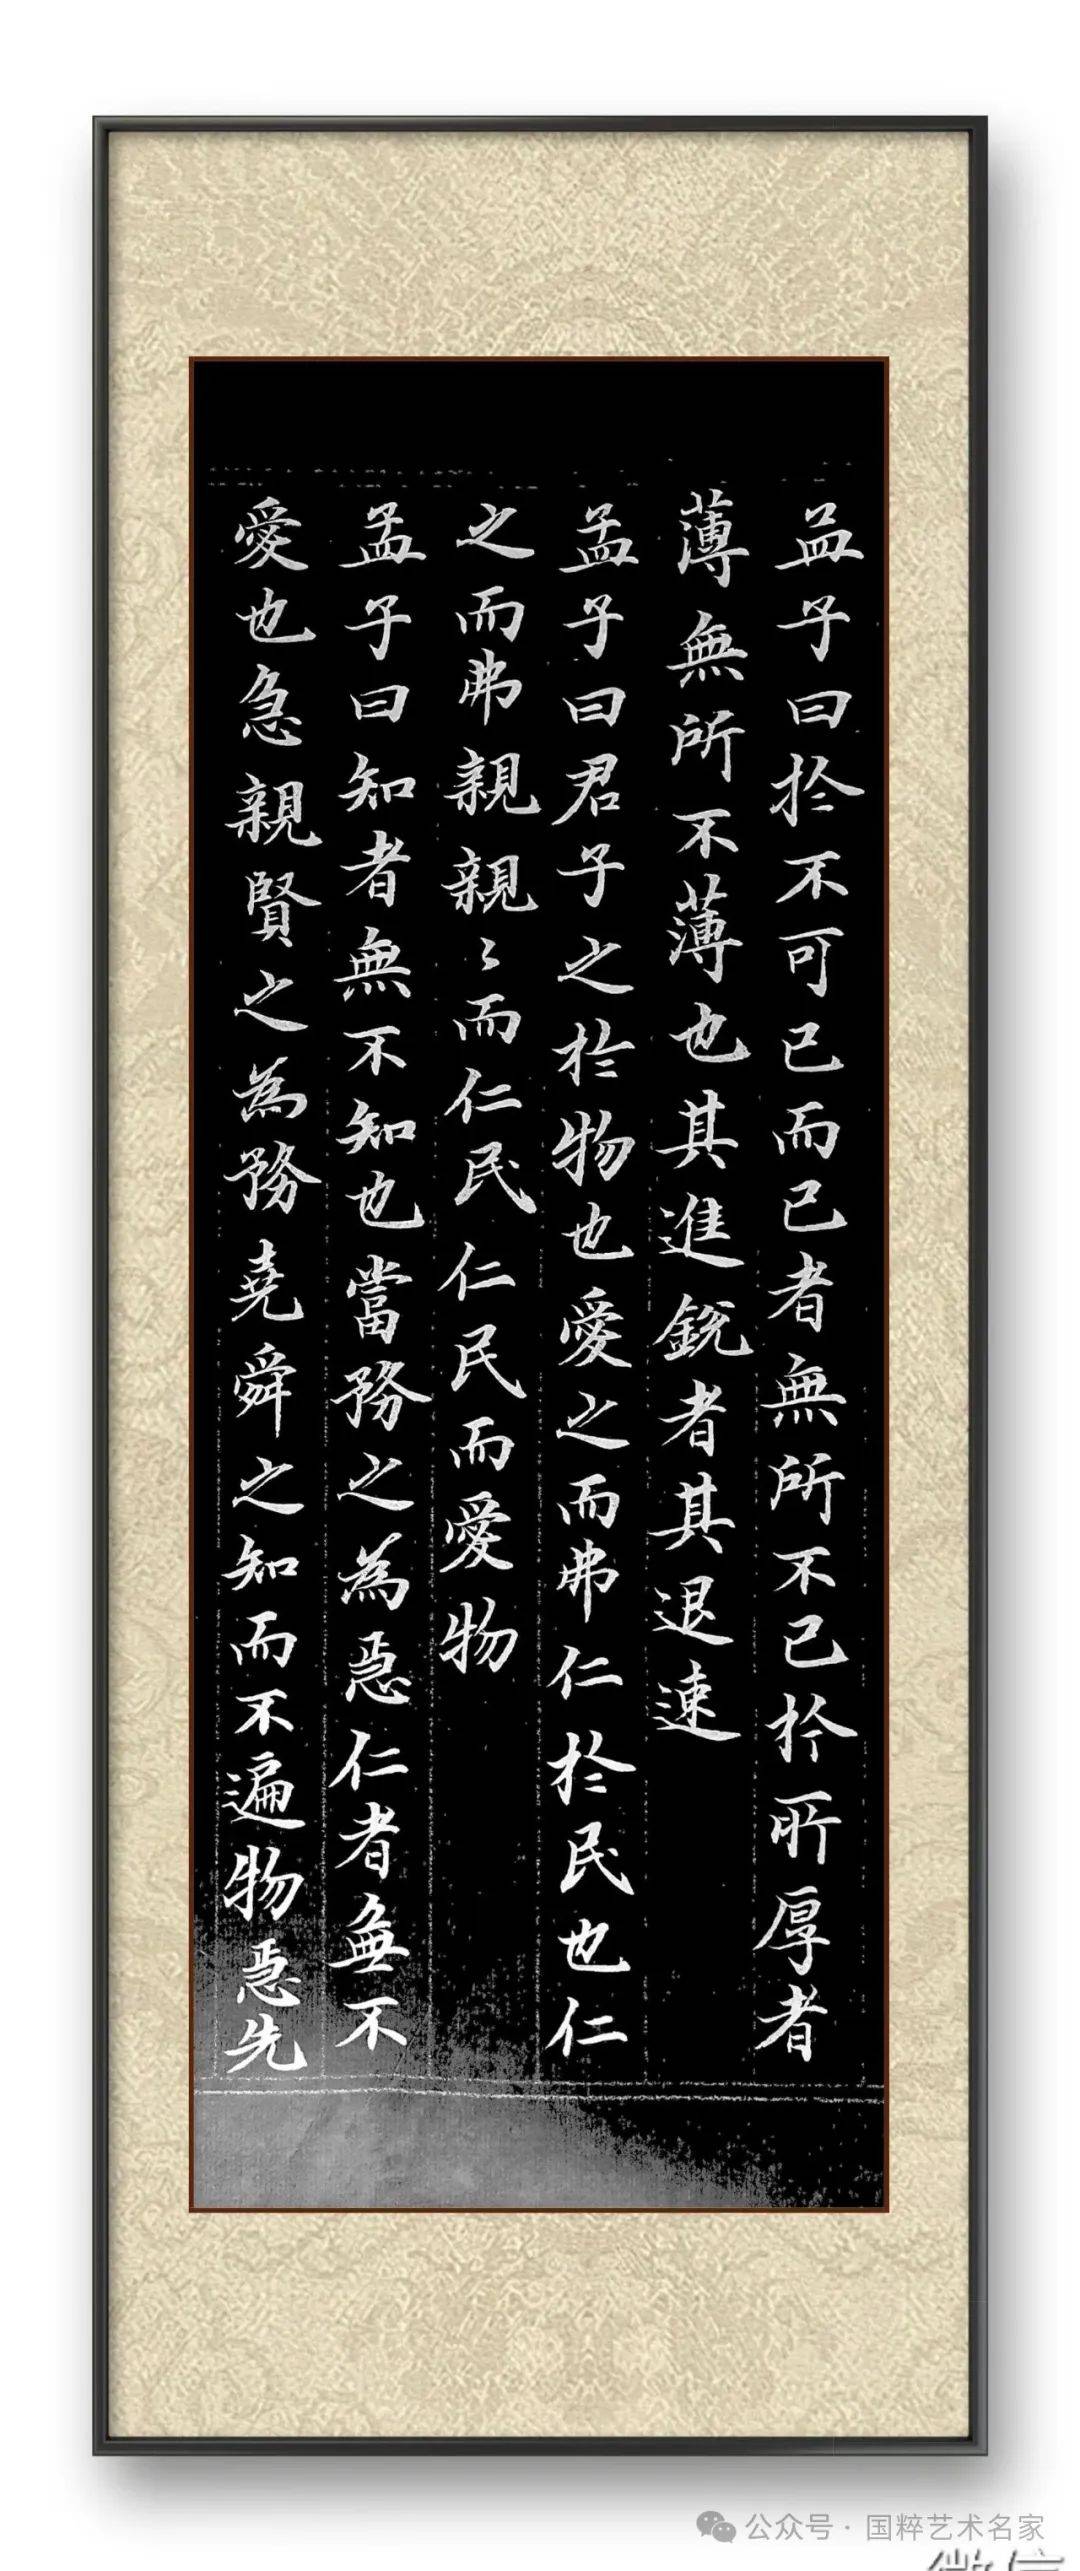 孟子曰於不可已而已者無所不已於所厚者
薄無所不薄也其進銳者其退速
孟子曰君子之於物也愛之而弗仁於民也仁
之而弗親親〻而仁民仁民而愛物
孟子曰知者無不知也當務之為急仁者無不
愛也急親賢之為務堯舜之知而不遍物急先
公众号 · 国粹艺术名家